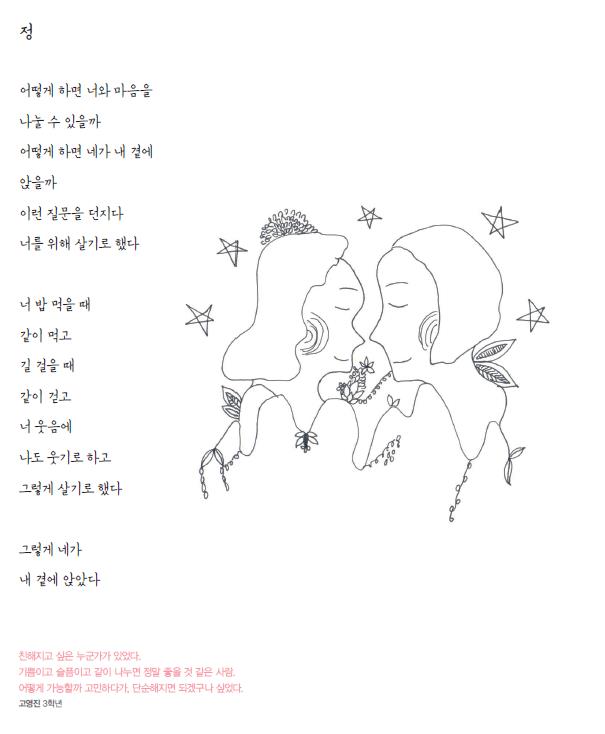 정
어떻게 하면 너와 마음을
나눌 수 있을까
어떻게 하면 네가 내 곁에
앉을까
이런 질문을 던지다
너를 위해 살기로 했다
너 밥 먹을 때
같이 먹고
길 걸을 때
같이 걷고
너 웃음에
나도 웃기로 하고
그렇게 살기로 했다
그렇게 네가
내 곁에 앉았다
친해지고 싶은 누군가가 있었다.
기쁨이고 슬픔이고 같이 나누면 정말 좋을 것 같은 사람.
어떻게 가능할까 고민하다가, 단순해지면 되겠구나 싶었다.
고영진 3학년